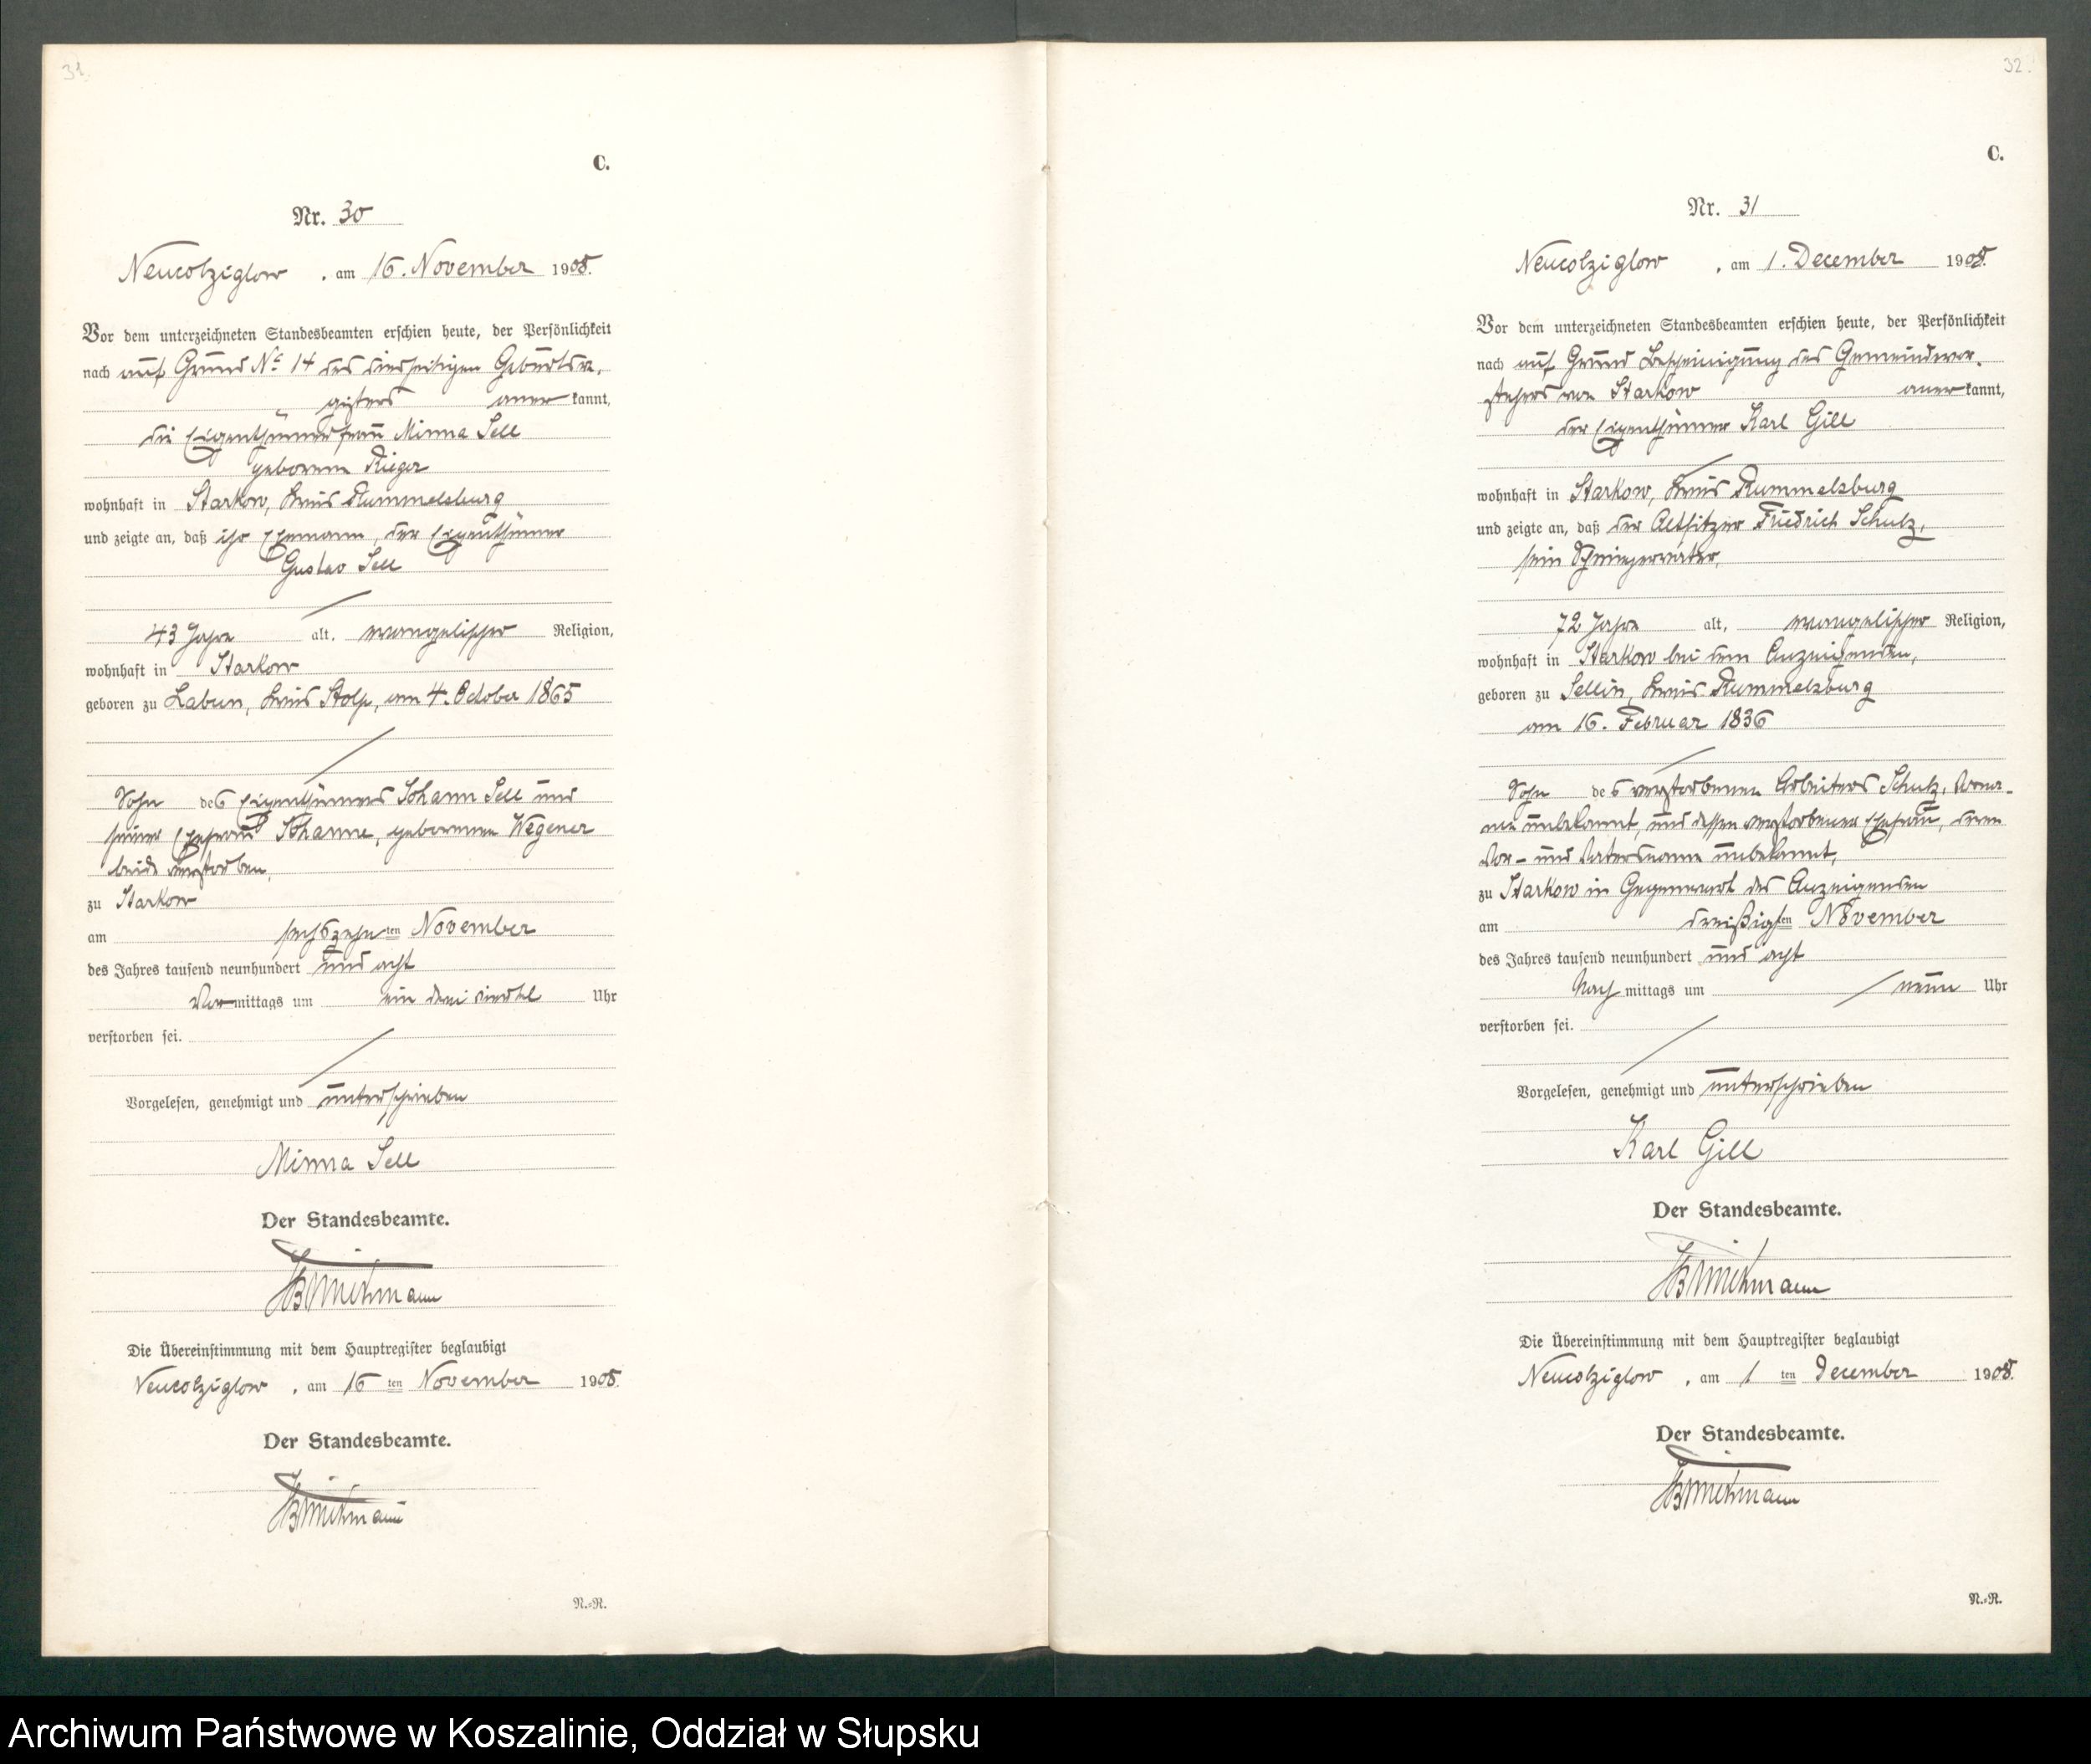 31.
C.
Nr. 30
Neucolziglow, am 16. November 1908.
Vor dem unterzeichneten Standesbeamten erschien heute, der Persönlichkeit
nach auf Grund No 14 des diesseitigen Geburtsre-
gisters anerkannt,
die Eigenthümerfrau Minna Sell
geborene Rieger
wohnhaft in Starkow, Kreis Rummelsburg
und zeigte an, daß ihr Ehemann, der Eigenthümer
Gustav Sell
43 Jahre alt, evangelischer Religion,
wohnhaft in Starkow
geboren zu Labun, Kreis Stolp, am 4. October 1865
Sohn des Eigenthümers Johann Sell und
seiner Ehefrau Johanne, geborenen Wegener
beide verstorben,
zu Starkow
am sechszehnten November
des Jahres tausend neunhundert und acht
Vormittags um ein drei viertel Uhr
verstorben sei.
Vorgelesen, genehmigt und unterschrieben
Minna Sell
Der Standesbeamte.
Die Übereinstimmung mit dem Hauptregister beglaubigt
Neucolziglow, am 16ten November 1908.
Der Standesbeamte.
N.-R.
32.
C.
Nr. 31
Neucolziglow, am 1. December 1908.
Vor dem unterzeichneten Standesbeamten erschien heute, der Persönlichkeit
nach auf Grund Bescheinigung des Gemeindevor-
stehers von Starkow anerkannt,
der Eigenthümer Karl Gill
wohnhaft in Starkow, Kreis Rummelsburg
und zeigte an, daß der Altsitzer Friedrich Schulz,
sein Schwiegervater,
72 Jahre alt, evangelischer Religion,
wohnhaft in Starkow bei dem Anzeigenden,
geboren zu Sellin, Kreis Rummelsburg
am 16. Februar 1836
Sohn des verstorbenen Arbeiters Schulz, Vorna-
me unbekannt, und dessen verstorbener Ehefrau, deren
Vor- und Vatersname unbekannt,
zu Starkow in Gegenwart des Anzeigenden
am dreißigsten November
des Jahres tausend neunhundert und acht
Nachmittags um neun Uhr
verstorben sei.
Vorgelesen, genehmigt und unterschrieben
Karl Gill
Der Standesbeamte.
Die Übereinstimmung mit dem Hauptregister beglaubigt
Neucolziglow, am 1ten December 1908.
Der Standesbeamte.
N.-R.
Archiwum Państwowe w Koszalinie, Oddział w Słupsku